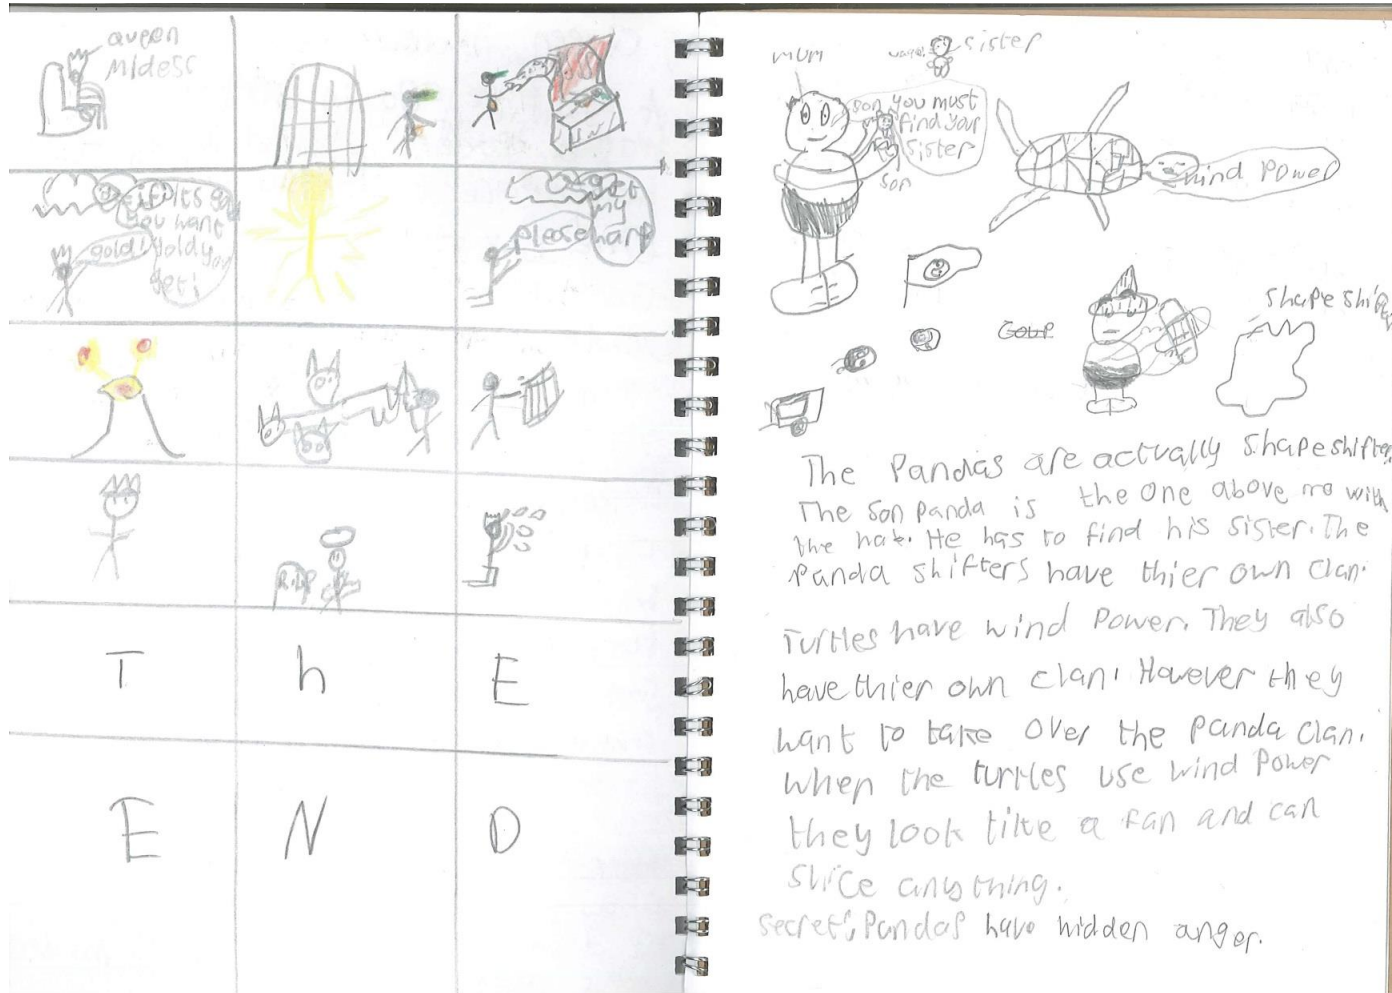 queen
Midesc
if its gold
you want
goldyou
get!
gold!
get
my
harp
please
R.I.P
T h E
E N D
mum
sister
son you must
find your
sister
son
wind Power
shape shifter
The Pandas are actually shapeshifters
The son panda is the one above me with
the hat. He has to find his sister. The
Panda shifters have thier own clan.
Turtles have wind Power. They also
have thier own clan. However they
want to take over the Panda clan.
when the turtles use wind Power
they look like a fan and can
slice anything.
secret: Pandas have hidden anger.